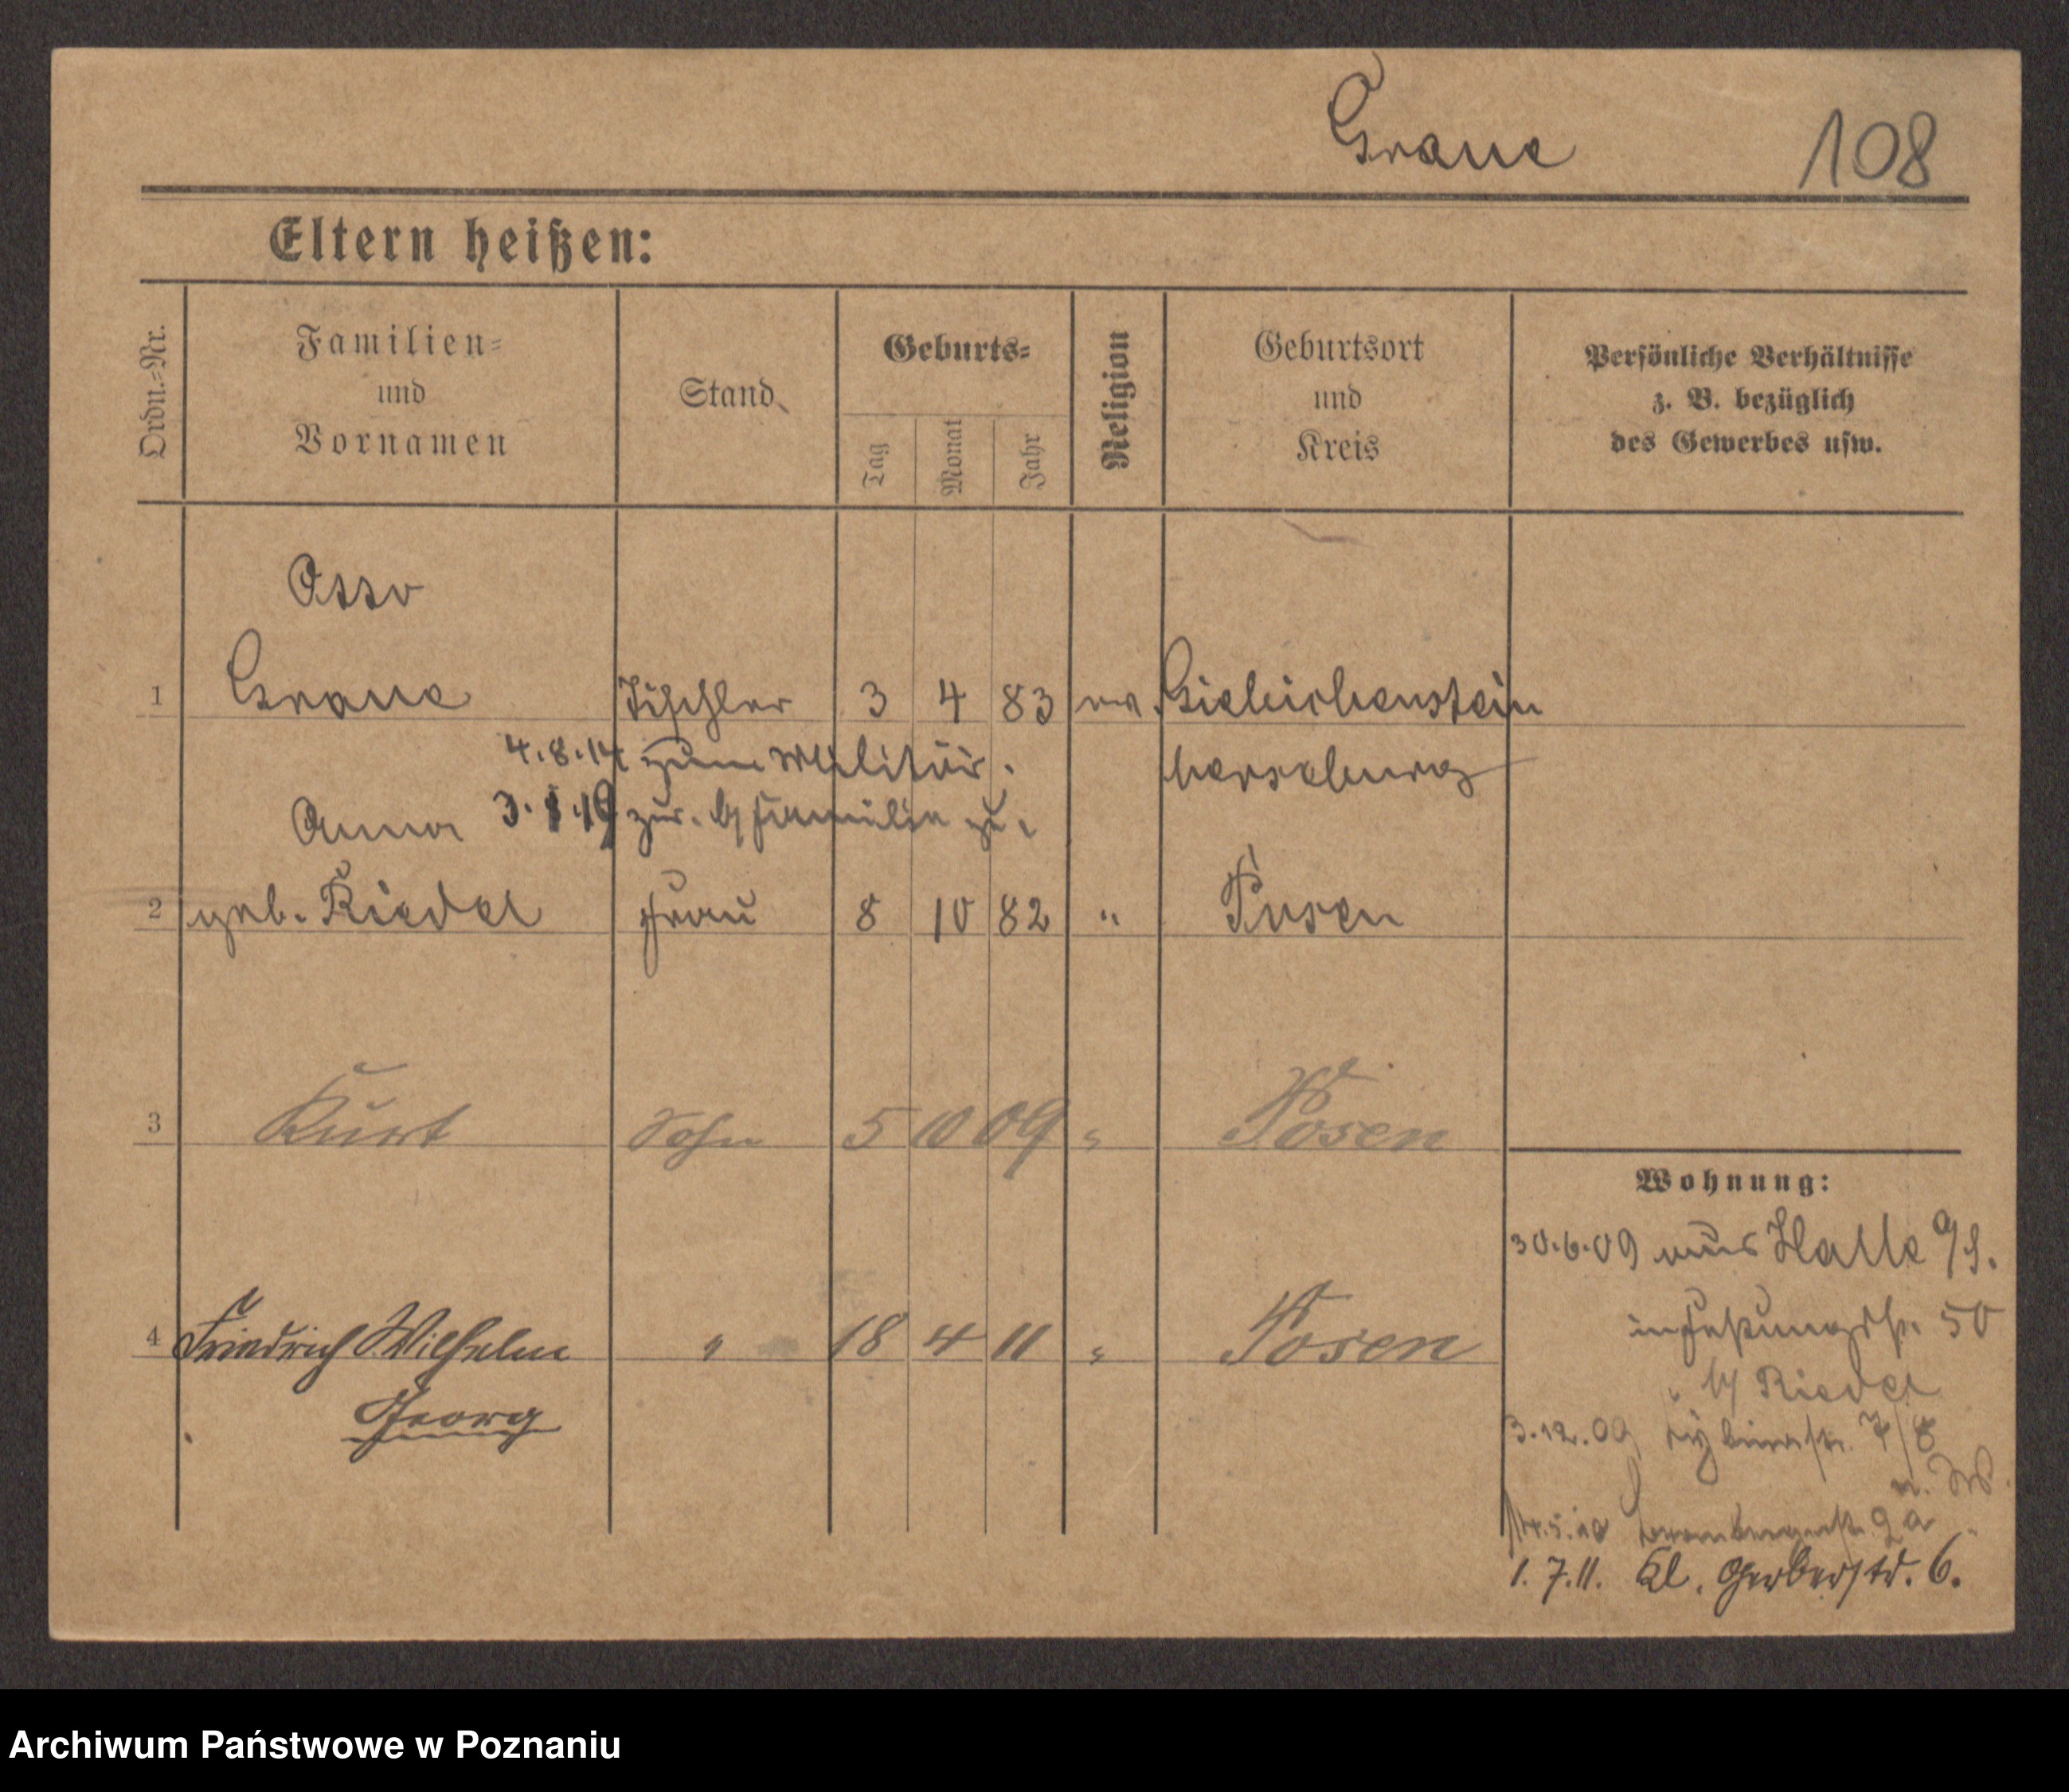 Graue 108
Eltern heißen:
Ordn.-Nr.
Familien-
und
Vornamen
Stand
Geburts-
Tag
Monat
Jahr
Religion
Geburtsort
und
Kreis
Persönliche Verhältnisse
z. B. bezüglich
des Gewerbes usw.
Otto
1 Graue Tischler 3 4 83 ev. Giebichenstein
4.8.14 zum Militär. Merseburg
Anna 3. 19 zur. b/ Familie zu.
2 geb. Riedel Frau 8 10 82 " Posen
3 Kurt Sohn 5 10 09 " Posen
Wohnung:
30.6.09 aus Halle a/S.
in Festungsstr. 50
b/ Riedel
3.12.09 7/8
4 Friedrich Wilhelm " 18 4 11 " Posen
Georg
14.5.10 Brombergerstr. 2a
1.7.11. Kl. Gerberstr. 6.
Archiwum Państwowe w Poznaniu